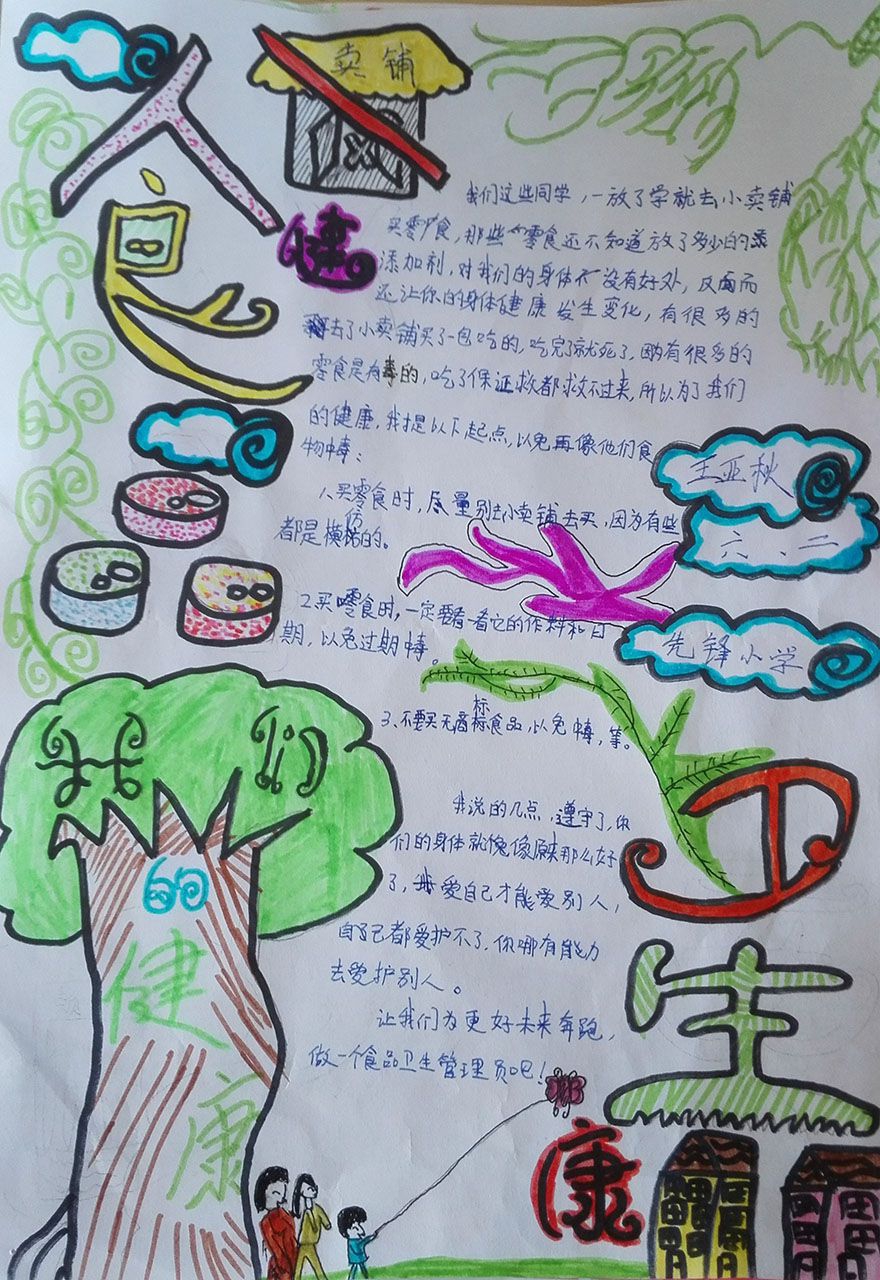 食
卖铺
健
我们这些同学，一放了学就去小卖铺
买零食，那些零食还不知道放了多少的
添加剂，对我们的身体不没有好处，反而
还让你的身体健康发生变化，有很多的
去了小卖铺买了一包吃的，吃完了就死了，因有很多的
零食是有毒的，吃了保证救都救不过来，所以为了我们
的健康，我提以下起点，以免再像他们食
物中毒：
1、买零食时，尽量别去小卖铺去买，因为有些
都是模仿的。
2、买零食时，一定要看一看它的作料和日
期，以免过期中毒。
3、不要买无商标食品，以免中毒，等。
王亚秋
六、二
先锋小学
我说的几点，遵守了，你
们的身体就像原来那么好
了，我爱自己才能爱别人，
自己都爱护不了，你哪有能力
去爱护别人。
让我们为更好未来奔跑，
做一个食品卫生管理员吧！
卫
生
康
共
们
的
健
康